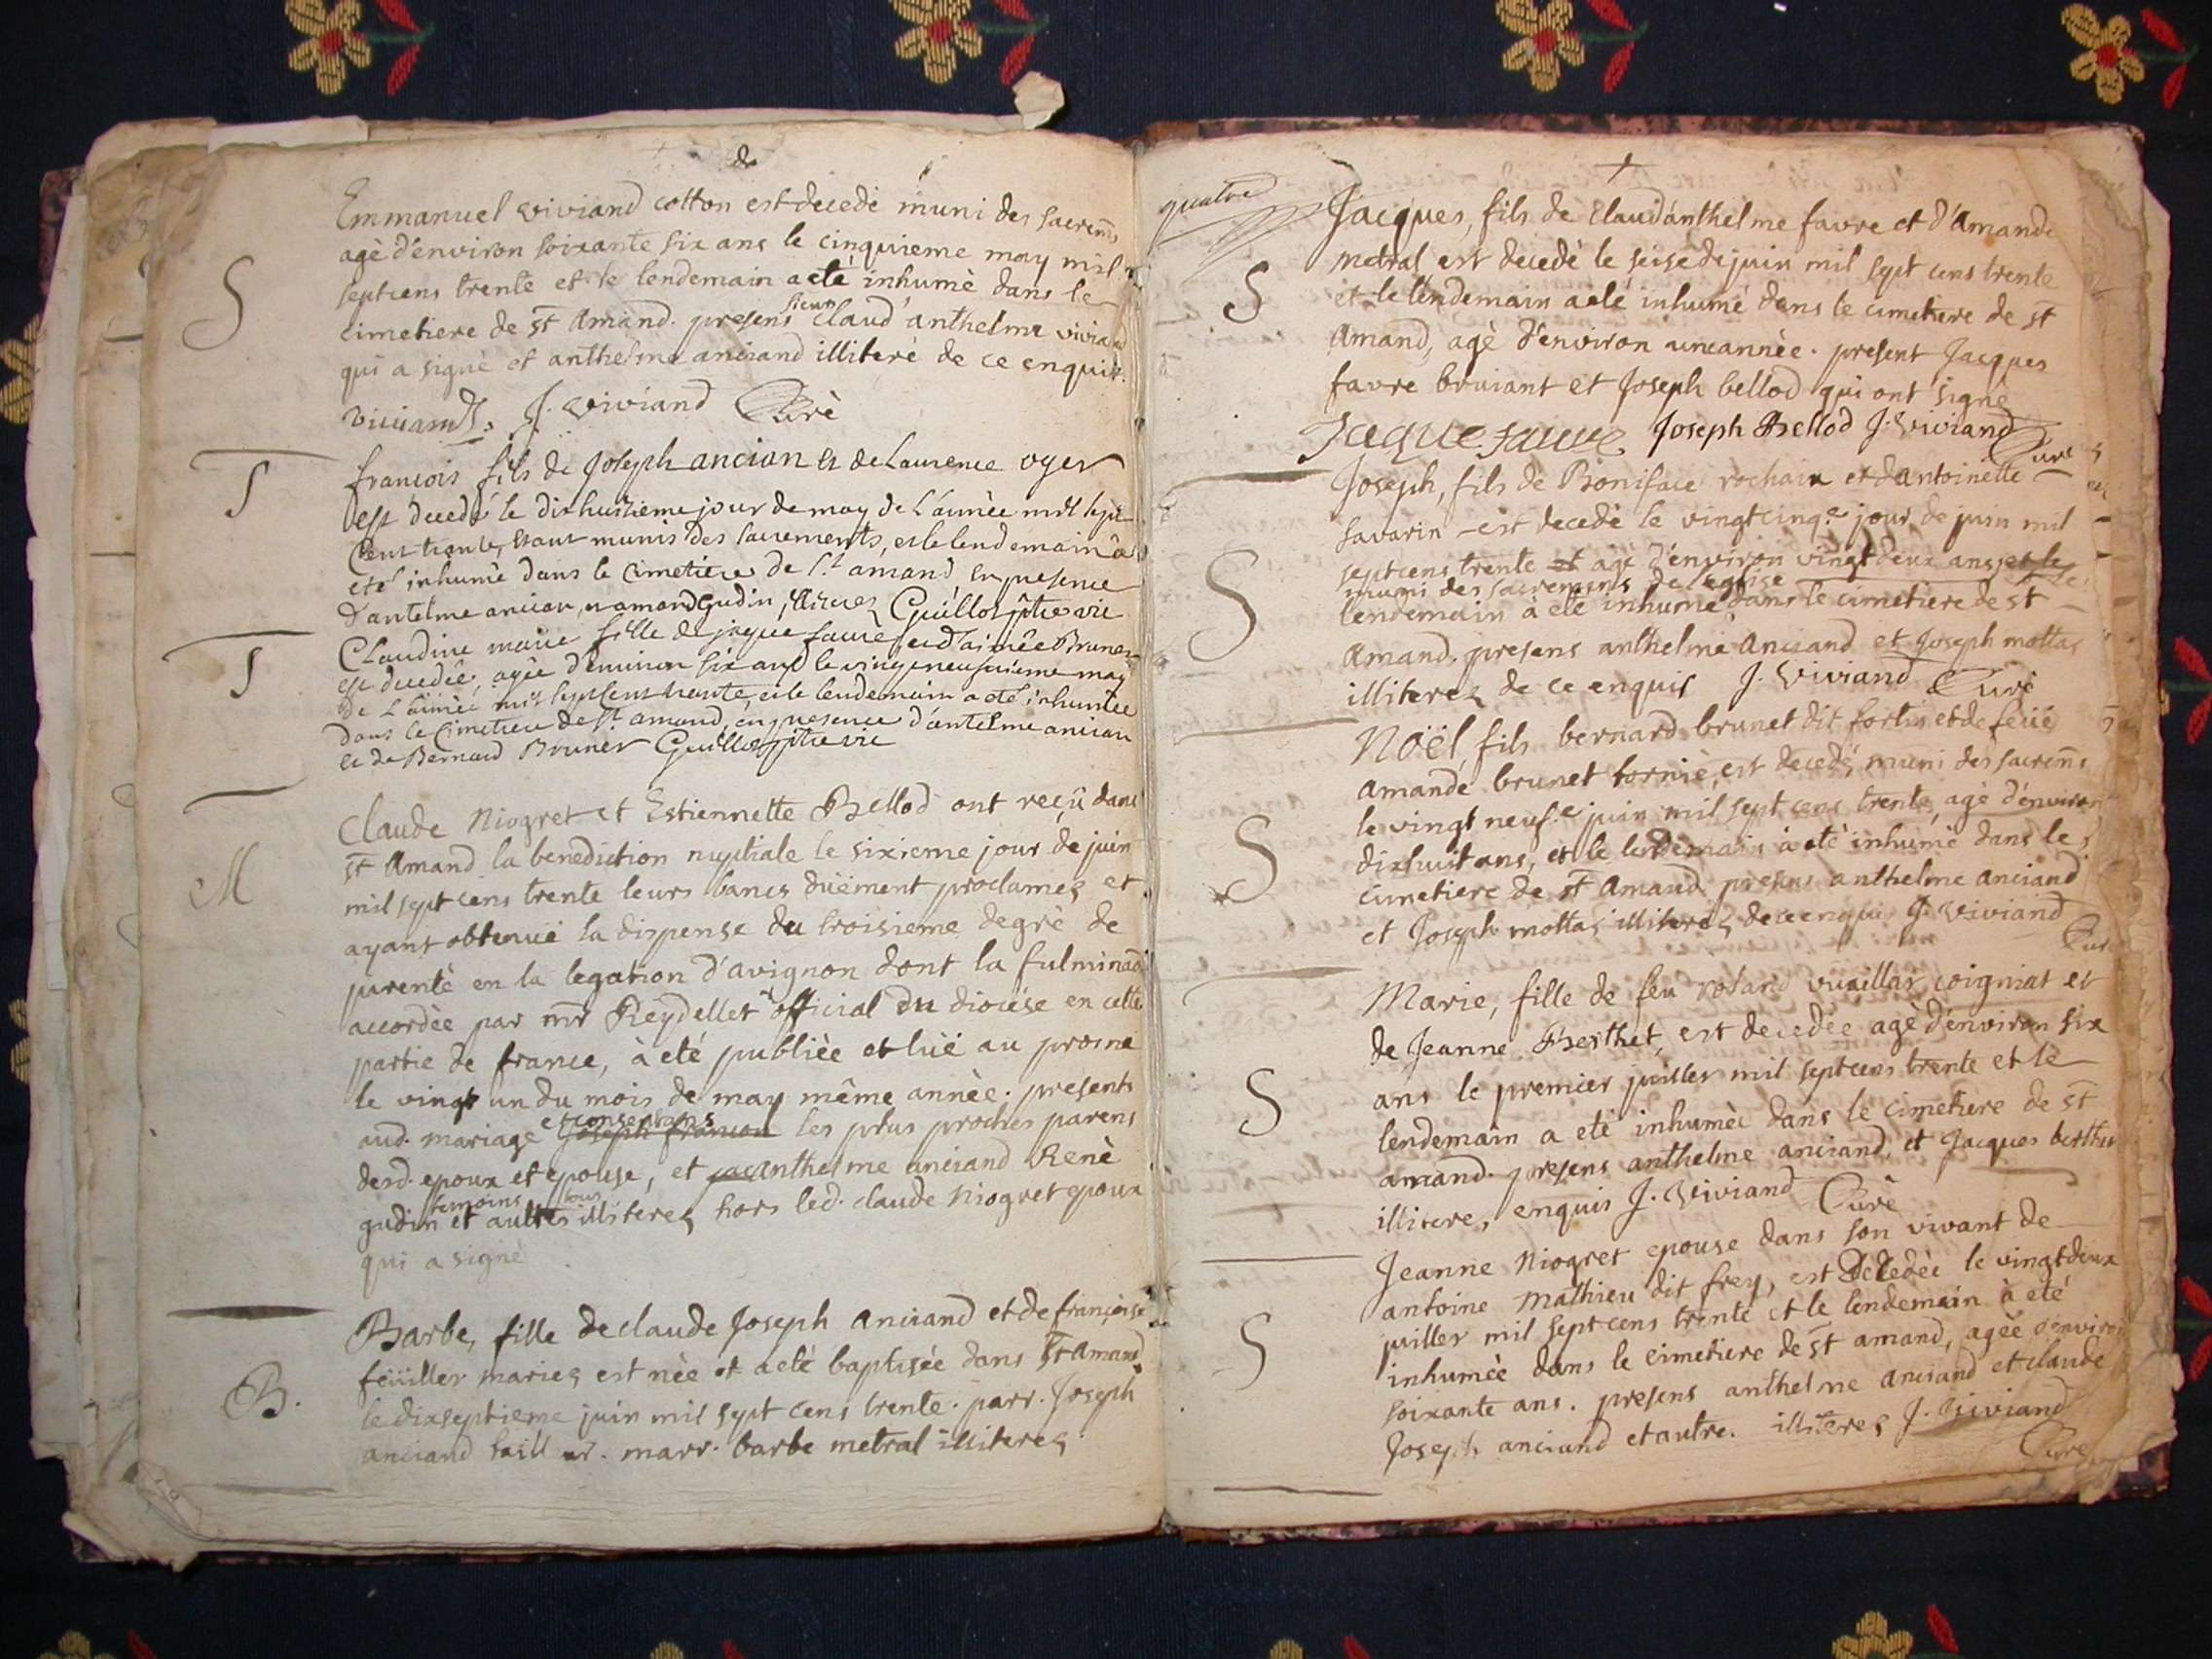 Emmanuel viviand cotton est decedé muni des sacrem̄s
agè d'environ soixante six ans le cinquieme may mil
septcens trente et le lendemain a eté inhumè dans le
S
cimetiere de st Amand. presens sieur Claud'anthelme viviand
qui a signè et anthelme anciand illiterè de ce enquis.
viviand. J. viviand Curè
S
francois fils de Joseph ancian et de Laurence oyer
est decedé le dix huitieme jour de may de L'année mil sept
Cent trente, etant munis des sacrements, et le lendemain a
eté inhumè dans le Cimetiere de st amand en presence
D'antelme ancian, et amand gudin illiterez Guillot ptre vic
S
Claudine marie fille de jaque favre et d'aimée Brunet
est decedée, agée d'environ six ans le vingt neufvieme may
de L'année mil sept cent trente, et le lendemain a eté inhumée
dans le Cimetiere de st amand, en presence d'antelme ancian
et de Bernard Brunet Guillot ptre vic
Claude Niogret et Estiennette Bellod ont reçû dans
st Amand la benediction nuptiale le sixieme jour de juin
M
mil sept cens trente leurs bancs duëment proclamez et
ayant obtenuë la dispense du troisieme degrè de
parentè en la legation d'avignon dont la fulminaõn
accordèe par mr Reydellet official du diocèse en cette
partie de france, à eté publièe et lüe au prosne
le vingt un du mois de may même annèe. presents
aud. mariage et consentans Joseph francon les plus proches parens
desd. epoux et epouse, et jac anthelme anciand Renè
gudin temoins et aultres tous illiterez hors led. claude Niogret epoux
qui a signè
Barbe, fille de claude Joseph anciand et de françoise
feüiller mariez est nèe et a eté baptisée dans st Amand
B.
le dixseptieme juin mil sept cens trente. parr. Joseph
anciand marr. barbe metral illiterez
quatre
Jacques, fils de Claud'anthelme favre et d'Amande
metral est decedè le seise de juin mil sept cens trente
S
et le lendemain a eté inhumé dans le cimetiere de st
Amand, agè d'environ une annèe. present Jacques
favre bruiant et Joseph bellod qui ont signè
Jacque favre Joseph Bellod J. Viviand
Curè
Joseph, fils de Boniface rochaix et d'antoinette
savarin est decedè le vingtcinq.e jour de juin mil
septcens trente et agè d'environ vingt deux ans et le
S
muni des sacremens de l'eglise
lendemain à eté inhumé dans le cimetiere de st
Amand. presens anthelme anciand et Joseph mottas
illiterez de ce enquis J. Viviand Curè
Noël, fils bernard brunet dit fortis et de feüe
Amande brunet tornie, est decedé, muni des sacrem̄s
le vingt neuf.e juin mil sept cens trente, agè d'environ
S
dixhuit ans, et le lendemain à eté inhumè dans le
cimetiere de st Amand. presens anthelme anciand
et Joseph mottas illiterez de ce enquis J. Viviand
Cur
Marie, fille de feu roland vuaillas coigniat et
de Jeanne Berthet, est decedèe agè d'environ six
S
ans le premier juillet mil septcens trente et le
lendemain a eté inhumèe dans le cimetiere de st
amand. presens anthelme anciand, et Jacques berthet
illiterez enquis J. Viviand Curè
Jeanne Niogret epouse dans son vivant de
antoine Mathieu dit frey, est Decedèe le vingtdeux
S
juillet mil septcens trente et le lendemain à eté
inhumèe dans le cimetiere de st amand, agèe d'environ
soixante ans. presens anthelme anciand et claude
Joseph anciand et autre. illiterez J. Viviand
Curè